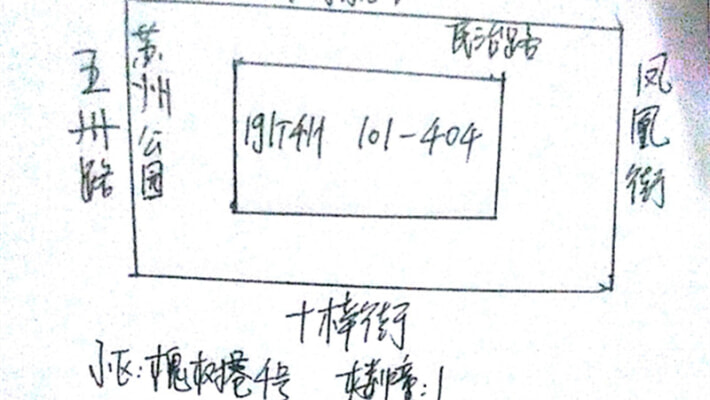 民治路
五州路
苏州公园
101-404
凤凰街
十梓街
小区:槐树巷4号 楼幢:1